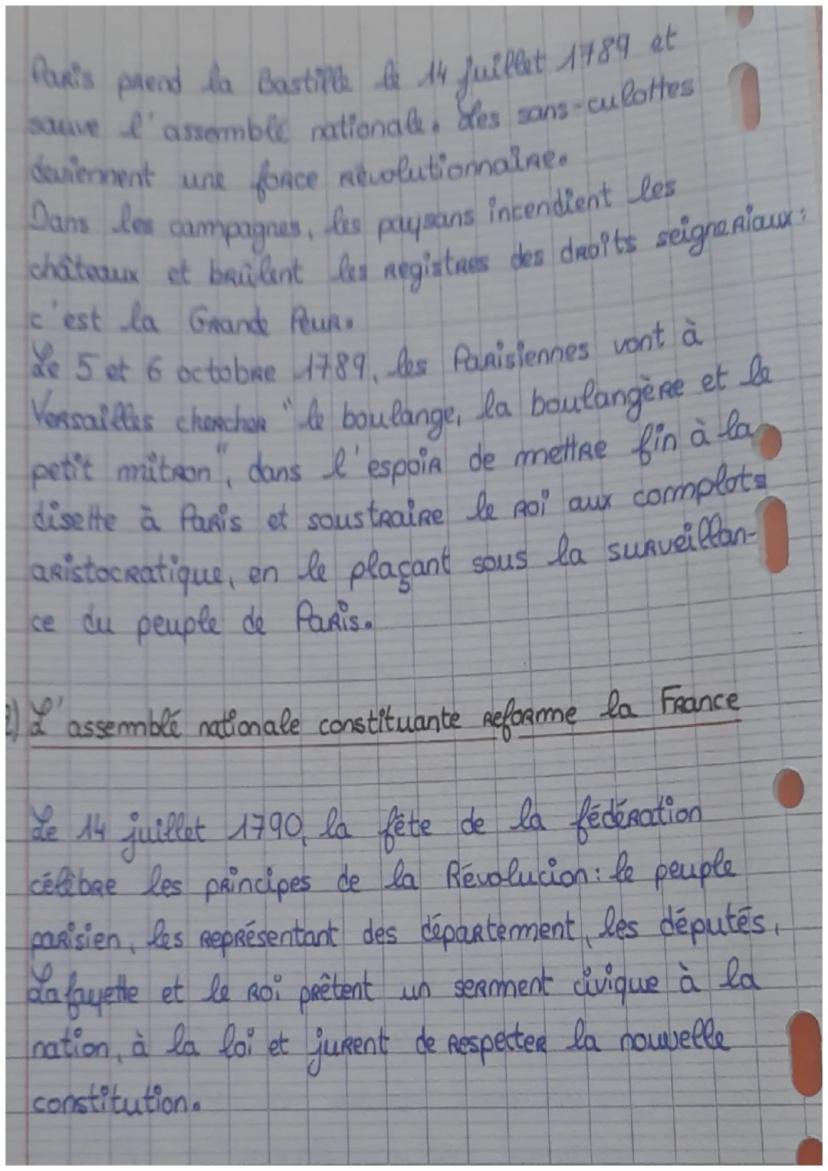 Paris prend la Bastille le 14 juillet 1789 et
sauve l'assemblé nationale. Les sans-culottes
deviennent une force révolutionnaire.
Dans les campagnes, les paysans incendient les
châteaux et brûlent les registres des droits seigneriaux :
c'est la Grande Peur.
Le 5 et 6 octobre 1789, les Parisiennes vont à
Versailles chercher "le boulange, la boulangère et le
petit mitron", dans l'espoir de mettre fin à la
disette à Paris et soustraire le roi aux complots
aristocratique, en le plaçant sous la surveillan-
ce du peuple de Paris.
2) L'assemblé nationale constituante reforme la France
Le 14 juillet 1790, la fête de la fédération
célèbre les principes de la Révolucion : le peuple
parisien, les représentant des département, les députés,
Lafayette et le roi prêtent un serment civique à la
nation, à la loi et jurent de respecter la nouvelle
constitution.